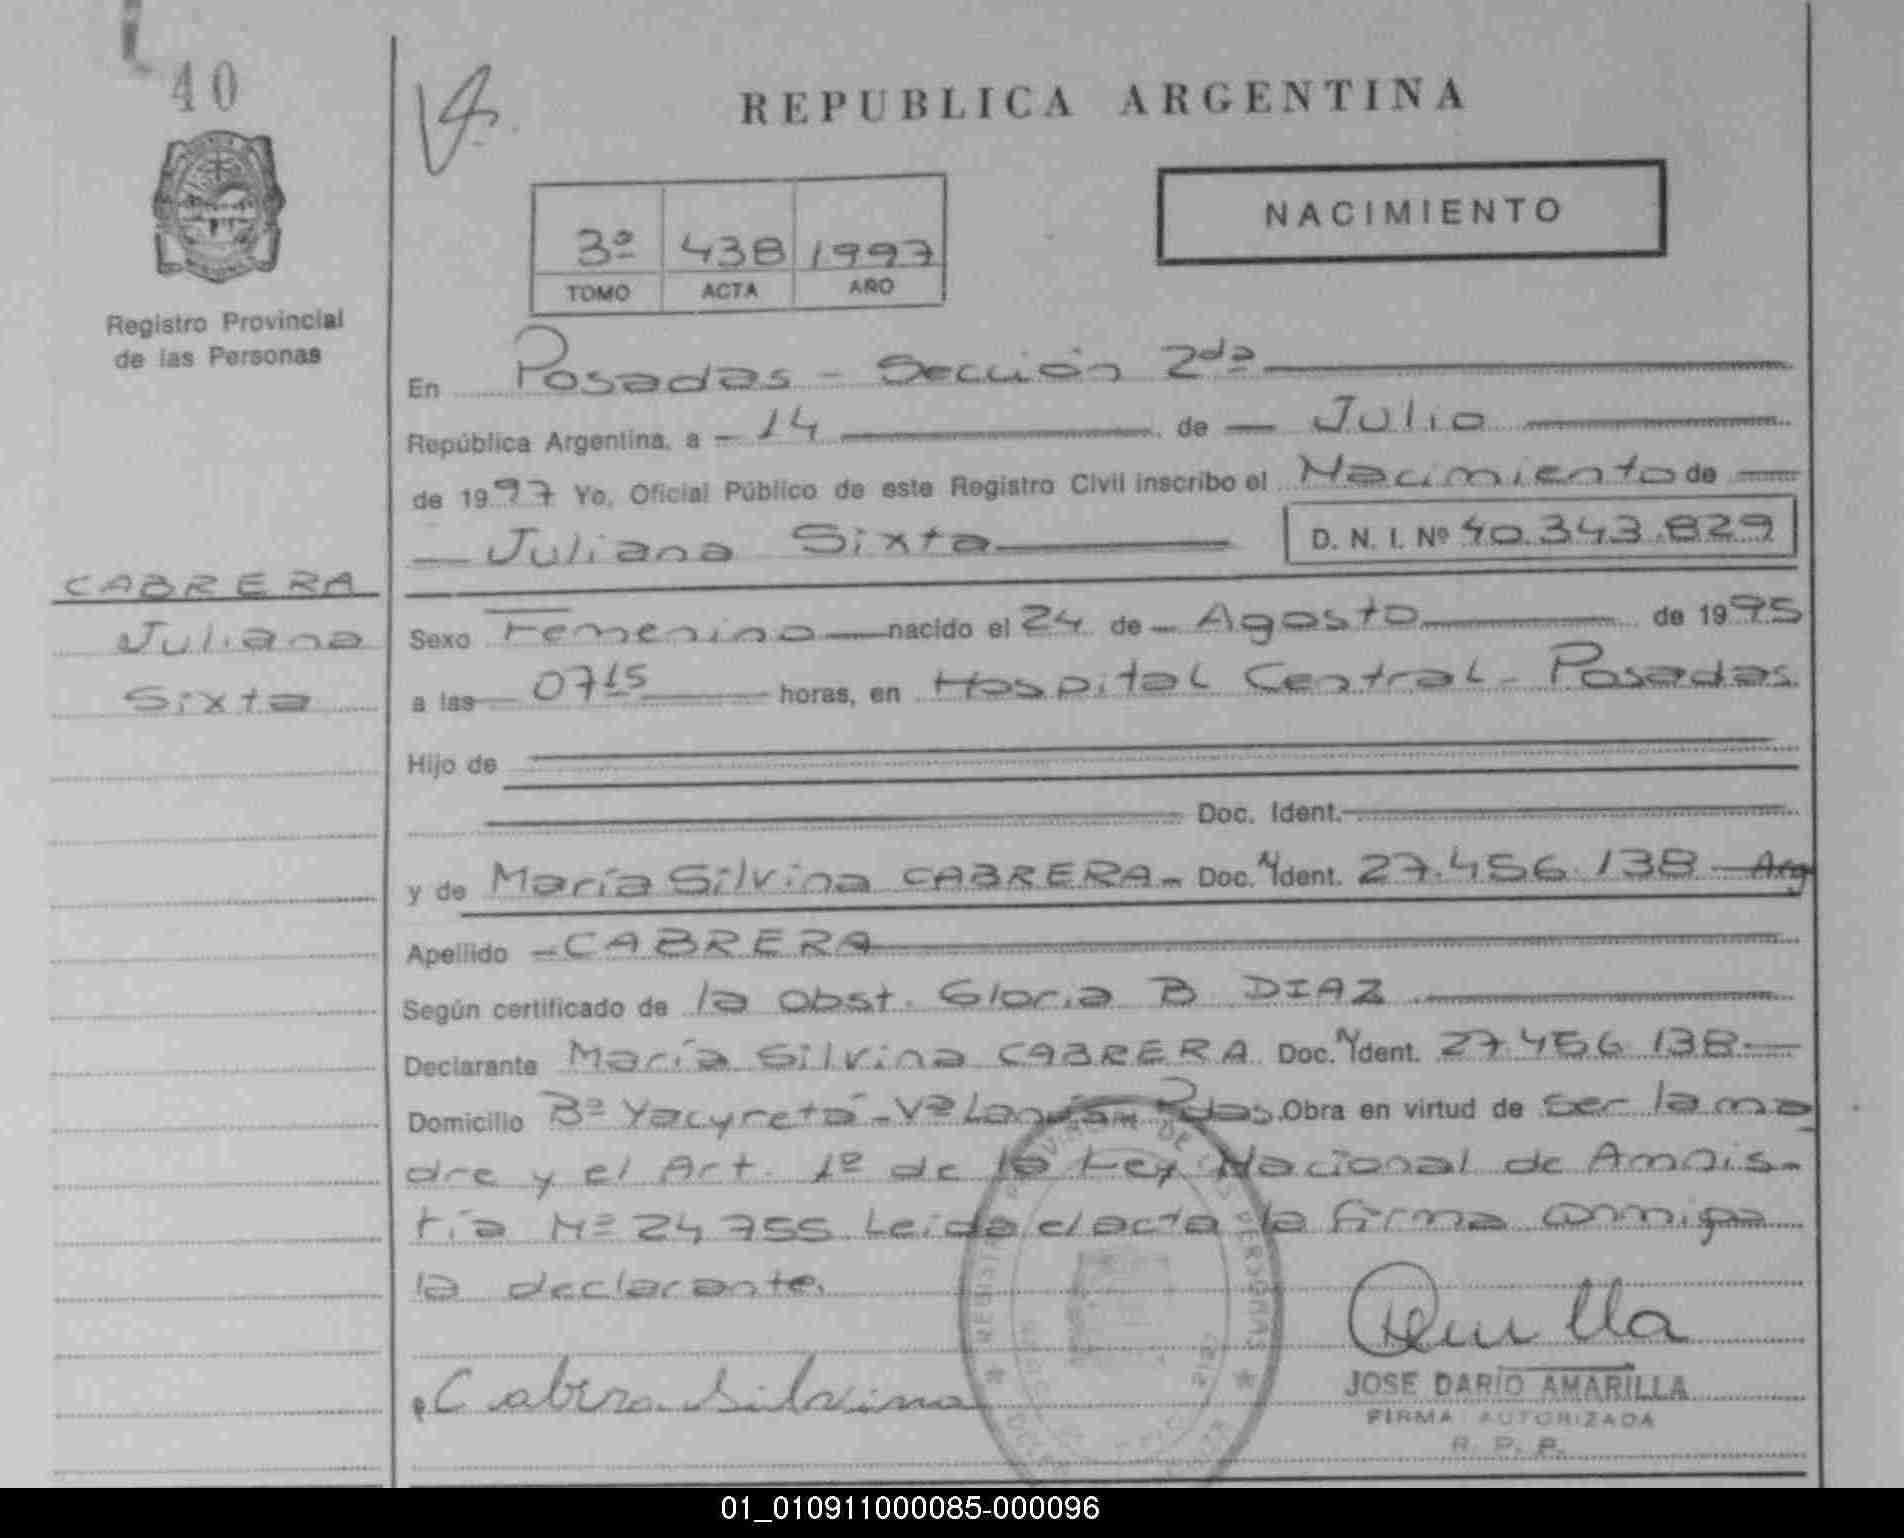 40
REPUBLICA ARGENTINA
NACIMIENTO
3º 438 1997
TOMO ACTA AÑO
Registro Provincial
de las Personas
En Posadas - Sección 2da
República Argentina, a - 14 de - Julio
de 1997 Yo, Oficial Público de este Registro Civil inscribo el Nacimiento de
Juliana Sixta D. N. I. Nº 40.343.829
CABRERA
Juliana
Sixta
Sexo Femenino nacido el 24 de - Agosto de 1995
a las 0715 horas, en Hospital Central - Posadas
Hijo de
Doc. Ident.
y de María Silvina CABRERA - Doc. N Ident. 27.456.138 - Arg
Apellido - CABRERA
Según certificado de la obst. Gloria B DIAZ
Declarante María Silvina CABRERA Doc. N Ident. 27.456.138
Domicilio Bº Yacyretá - Vª Pdas. Obra en virtud de ser la ma
dre y el Art. 1º de la Ley Nacional de Amnis-
tía Nº 24755 Leida el acta la firma conmigo
la declarante.
Cabrera Silvina
JOSE DARIO AMARILLA
FIRMA AUTORIZADA
R. P. P.
01_010911000085-000096